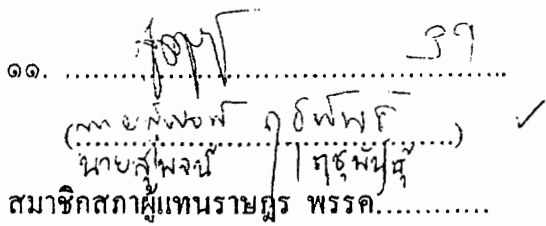 ๑๑. ............................................................
(นายสุพจน์ ฤชุพันธุ์)
นายสุพจน์ ฤชุพันธุ์
สมาชิกสภาผู้แทนราษฎร พรรค............